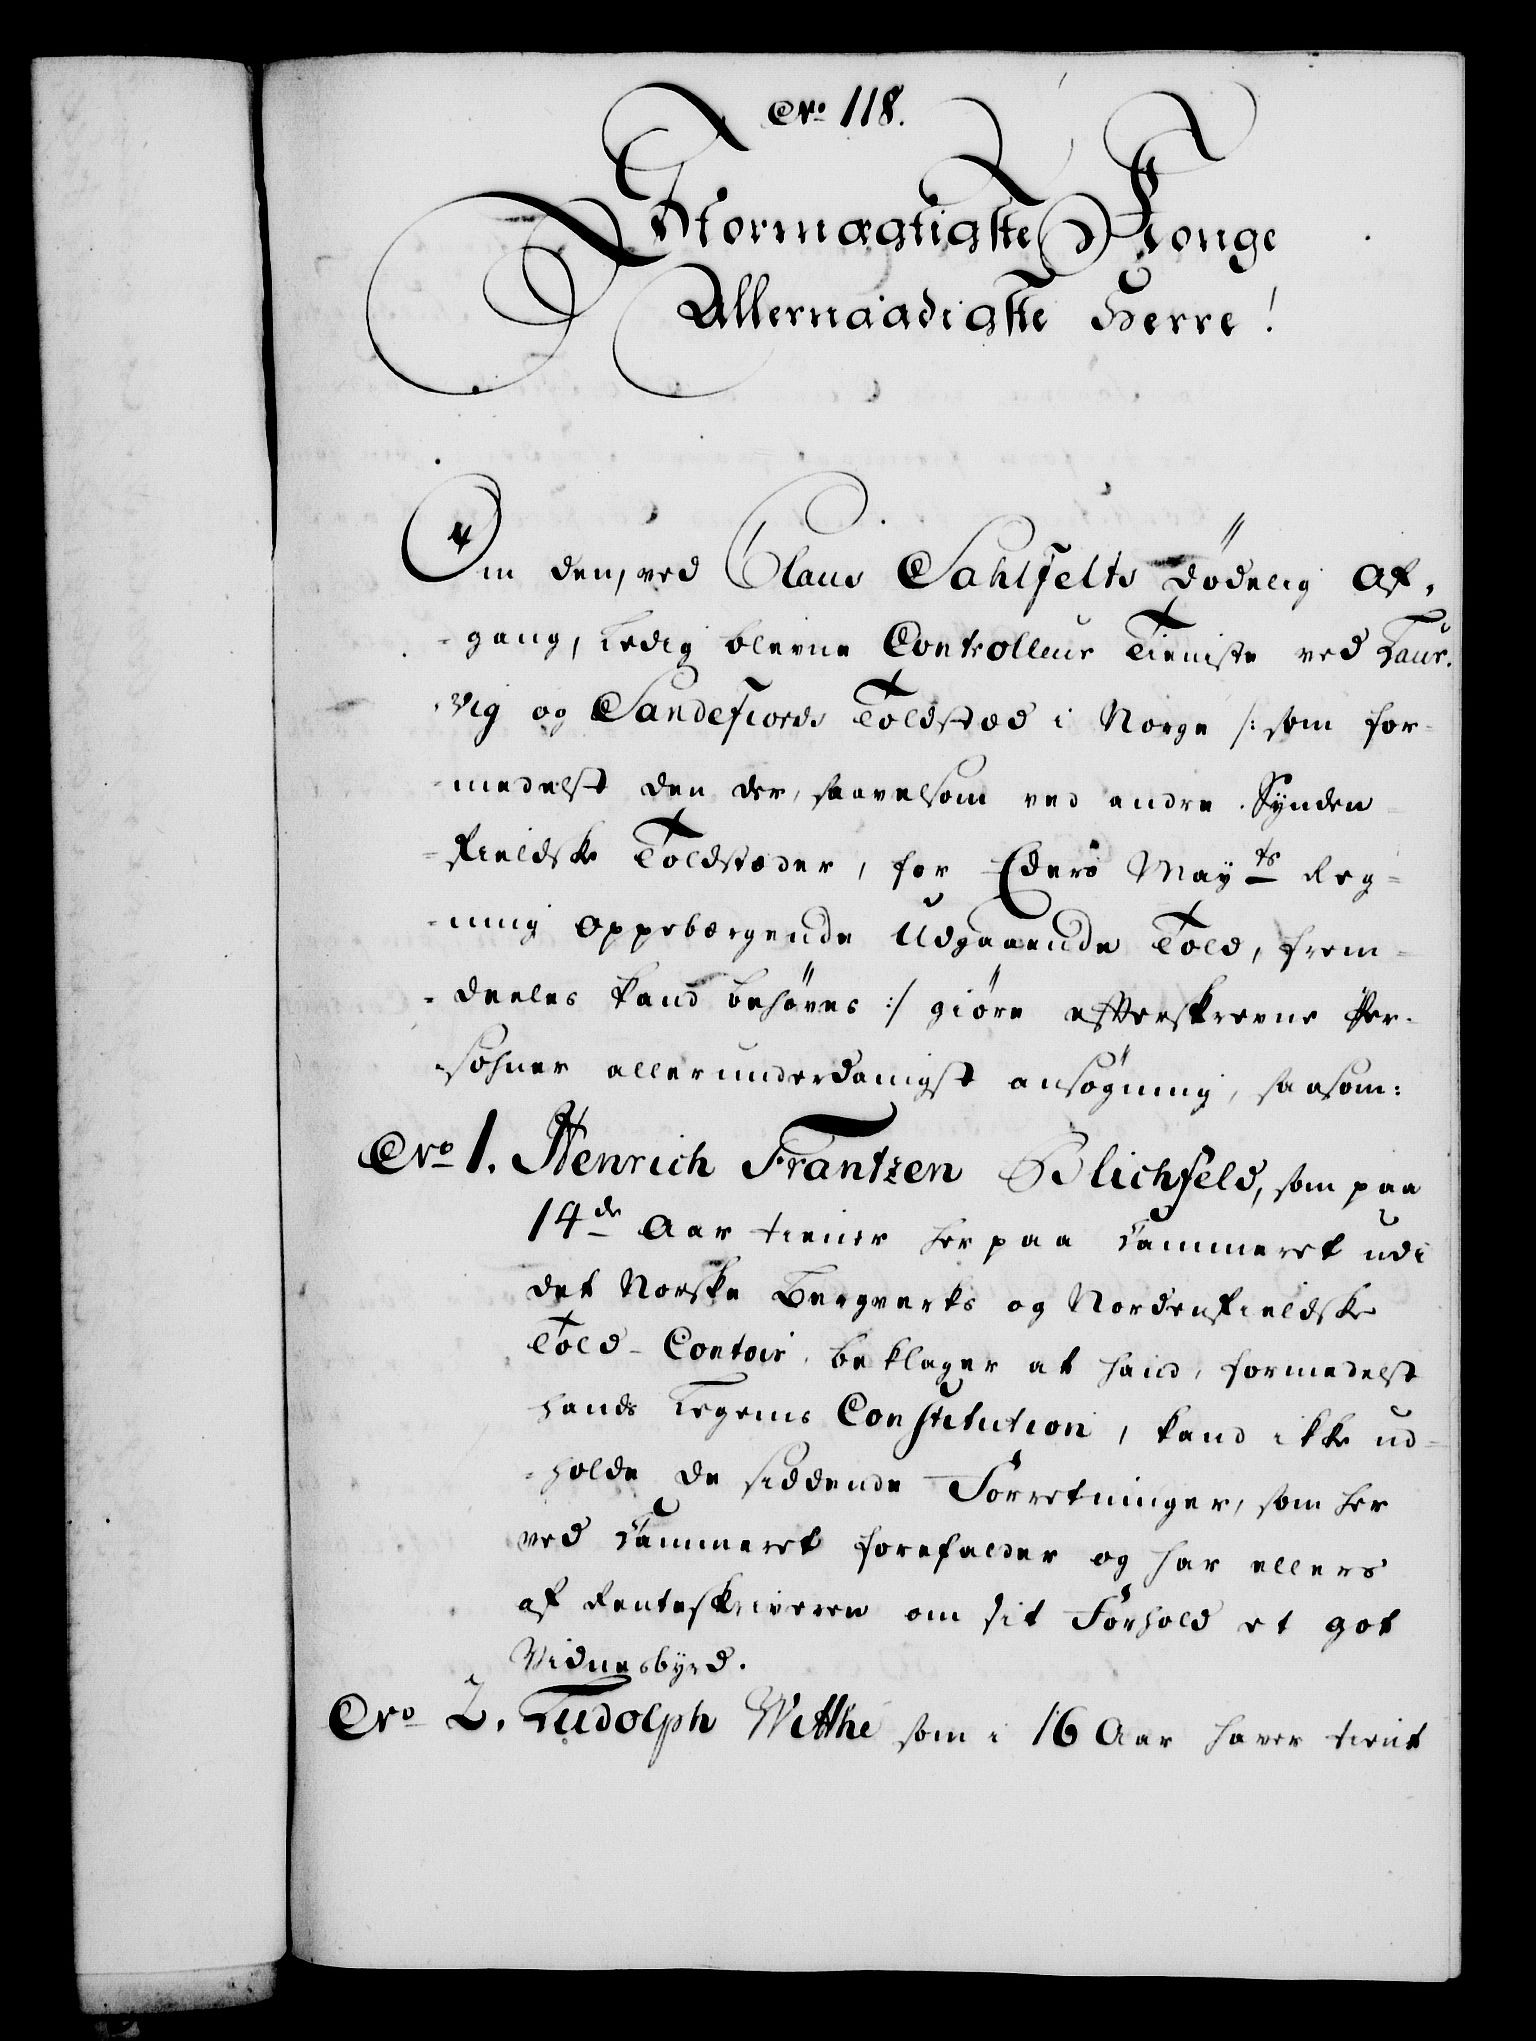 No. 118.
Stormægtigste Konge
Allernaadigste Herre!
Om den, ved Claus Sahlfelts dödelig Af-
-gang, ledig blevne Controlleur Tieniste ved Laur-
-vig og Sandefiords Toldsted i Norge /: som for-
-medelst den der, saavelsom ved andre Synden-
-fieldske Toldstæder, for Eders Mayts Reg-
-ning oppebærgende Udgaaende Told, frem-
-deeles kand behöves :/ giöre efterskrevne Per-
-sohner allerunderdanigst ansögning, saasom:
No 1. Henrich Frantzen Blichfeld, som paa
14de Aar tiener her paa Cammeret udi
det Norske Bergverks og Nordenfieldske
Told-Contoir, beklager at hand, formedelst
hands Legems Constitution, kand ikke ud-
-holde de siddende Forretninger, som her
ved Cammeret forefalder og har ellers
af Renteskriveren om sit Forhold et got
Vidnesbyrd.
No 2. Ludolph Withe som i 16 Aar haver tient